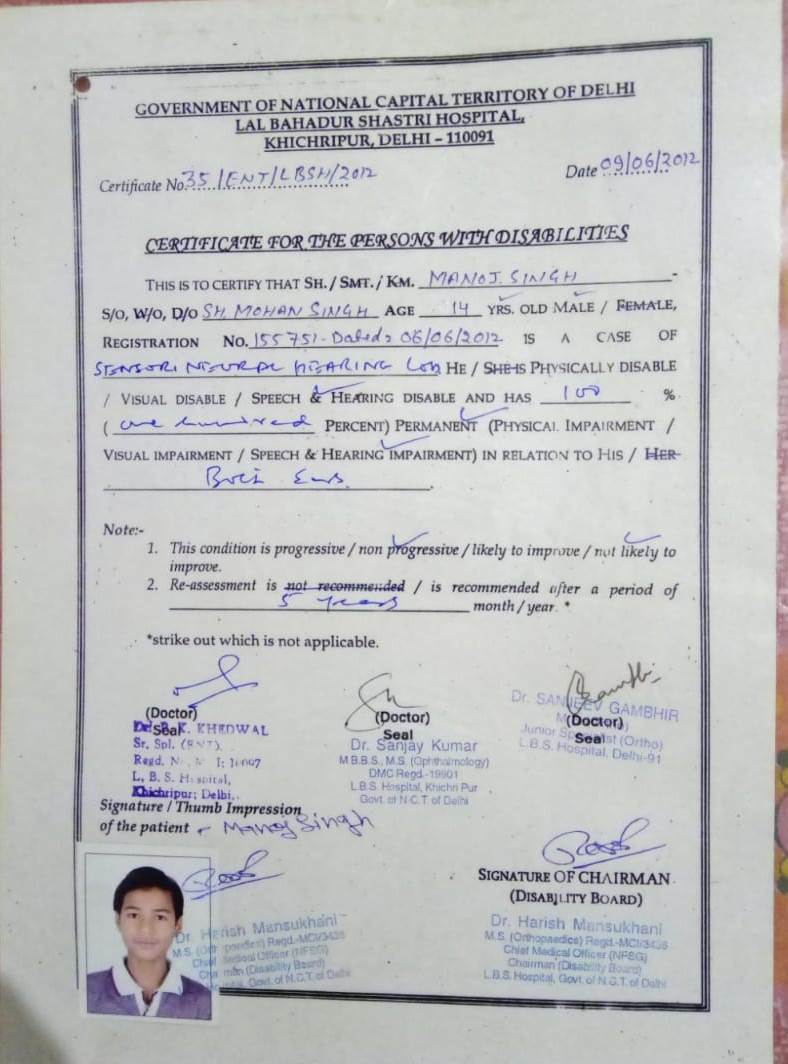 GOVERNMENT OF NATIONAL CAPITAL TERRITORY OF DELHI
LAL BAHADUR SHASTRI HOSPITAL,
KHICHRIPUR, DELHI – 110091
Certificate No. 35/ENT/LBSH/2012
Date 09/06/2012
CERTIFICATE FOR THE PERSONS WITH DISABILITIES
THIS IS TO CERTIFY THAT SH. / SMT. / KM. MANOJ. SINGH
S/O, W/O, D/O SH. MOHAN SINGH AGE 14 YRS. OLD MALE / FEMALE,
REGISTRATION NO. 155751-Dated: 06/06/2012 IS A CASE OF
SENSORI NEURAL HEARING Loss HE / SHE IS PHYSICALLY DISABLE
/ VISUAL DISABLE / SPEECH & HEARING DISABLE AND HAS 100 %
( one hundred PERCENT) PERMANENT (PHYSICAL IMPAIRMENT /
VISUAL IMPAIRMENT / SPEECH & HEARING IMPAIRMENT) IN RELATION TO HIS / HER
Both Ears.
Note:-
1. This condition is progressive / non progressive / likely to improve / not likely to
improve.
2. Re-assessment is not recommended / is recommended after a period of
5 years month / year. *
*strike out which is not applicable.
(Doctor)
Seal
KHEDWAL
Sr. Spl. (ENT).
Regd.
L. B. S. Hospital,
Khichripur; Delhi.
(Doctor)
Seal
Dr. Sanjay Kumar
M.B.B.S., M.S. (Ophthalmology)
DMC Regd.-19901
L.B.S. Hospital, Khichri Pur
Govt. of N.C.T. of Delhi
Dr. SANJEEV GAMBHIR
(Doctor)
Junior Specialist (Ortho)
Seal
L.B.S. Hospital, Delhi-91
Signature / Thumb Impression
of the patient Manoj Singh
SIGNATURE OF CHAIRMAN
(DISABILITY BOARD)
Dr. Harish Mansukhani
M.S. (Orthopaedics) Regd.-MCI/3456
Chief Medical Officer (NFSG)
Chairman (Disability Board)
Hospital, Govt. of N.C.T. of Delhi
Dr. Harish Mansukhani
M.S. (Orthopaedics) Regd.-MCI/3456
Chief Medical Officer (NFSG)
Chairman (Disability Board)
L.B.S. Hospital, Govt. of N.C.T. of Delhi